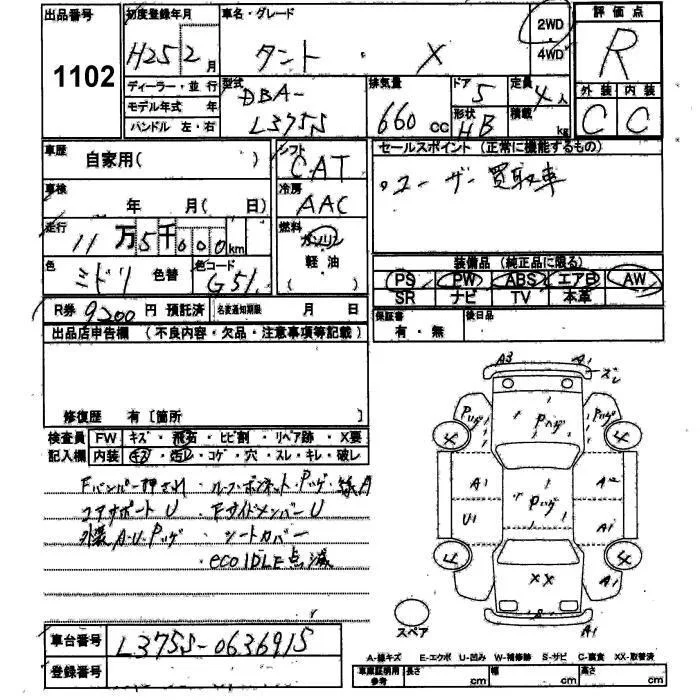 出品番号
1102
初度登録年月
H25 2 月
車名・グレード
タント ・ X
2WD
4WD
評価点
R
外装 内装
C C
ディーラー・並行
モデル年式 年
ハンドル 左・右
型式
DBA-
L375S
排気量
660 cc
ドア 5
形状 HB
定員 4 人
積載 kg
車歴
自家用( )
車検
年 月( 日)
走行
11 万 5 千 000 km
色
ミドリ 色替
色コード
G51
シフト
CAT
冷房
AAC
燃料
ガソリン
軽油
( )
セールスポイント (正常に機能するもの)
・ユーザー買取車
装備品 (純正品に限る)
PS PW ABS エアB AW
SR ナビ TV 本革
保証書
有・無
後日品
R券 9200 円 預託済
名変通知期限 月 日
出品店申告欄 (不良内容・欠品・注意事項等記載)
修復歴 有 [箇所 ]
検査員 FW キズ・飛石・ヒビ割・リペア跡・X要
記入欄 内装 キズ・汚レ・コゲ・穴・スレ・キレ・破レ
Fバンパー押され ・ルーフ・ボンネット・Pハゲ・線A
コアサポートU ・FサイドメンバーU
外装A・U・Pハゲ ・シートカバー
・eco IDLE点滅
車台番号
L375S-0636915
登録番号
A3 A1
ズレ
Pハゲ Pハゲ Pハゲ
4 4
A1 A2
Pハゲ
U1 A1
4 4
XX A1
S
A1
スペア
A-線キズ E-エクボ U-凹み W-補修跡 S-サビ C-腐食 XX-取替済
車庫証明用
参考
長さ cm 幅 cm 高さ cm